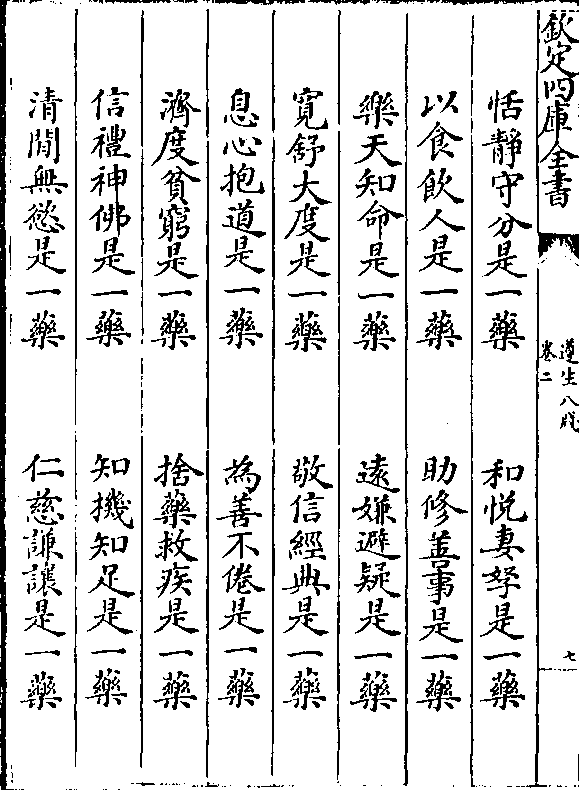 欽定四庫全書
遵生八牋
卷二
七
恬靜守分是一藥 和悅妻孥是一藥
以食飲人是一藥 助修善事是一藥
樂天知命是一藥 遠嫌避疑是一藥
寛舒大度是一藥 敬信經典是一藥
息心抱道是一藥 為善不倦是一藥
濟度貧窮是一藥 捨藥救疾是一藥
信禮神佛是一藥 知機知足是一藥
清閒無慾是一藥 仁慈謙讓是一藥